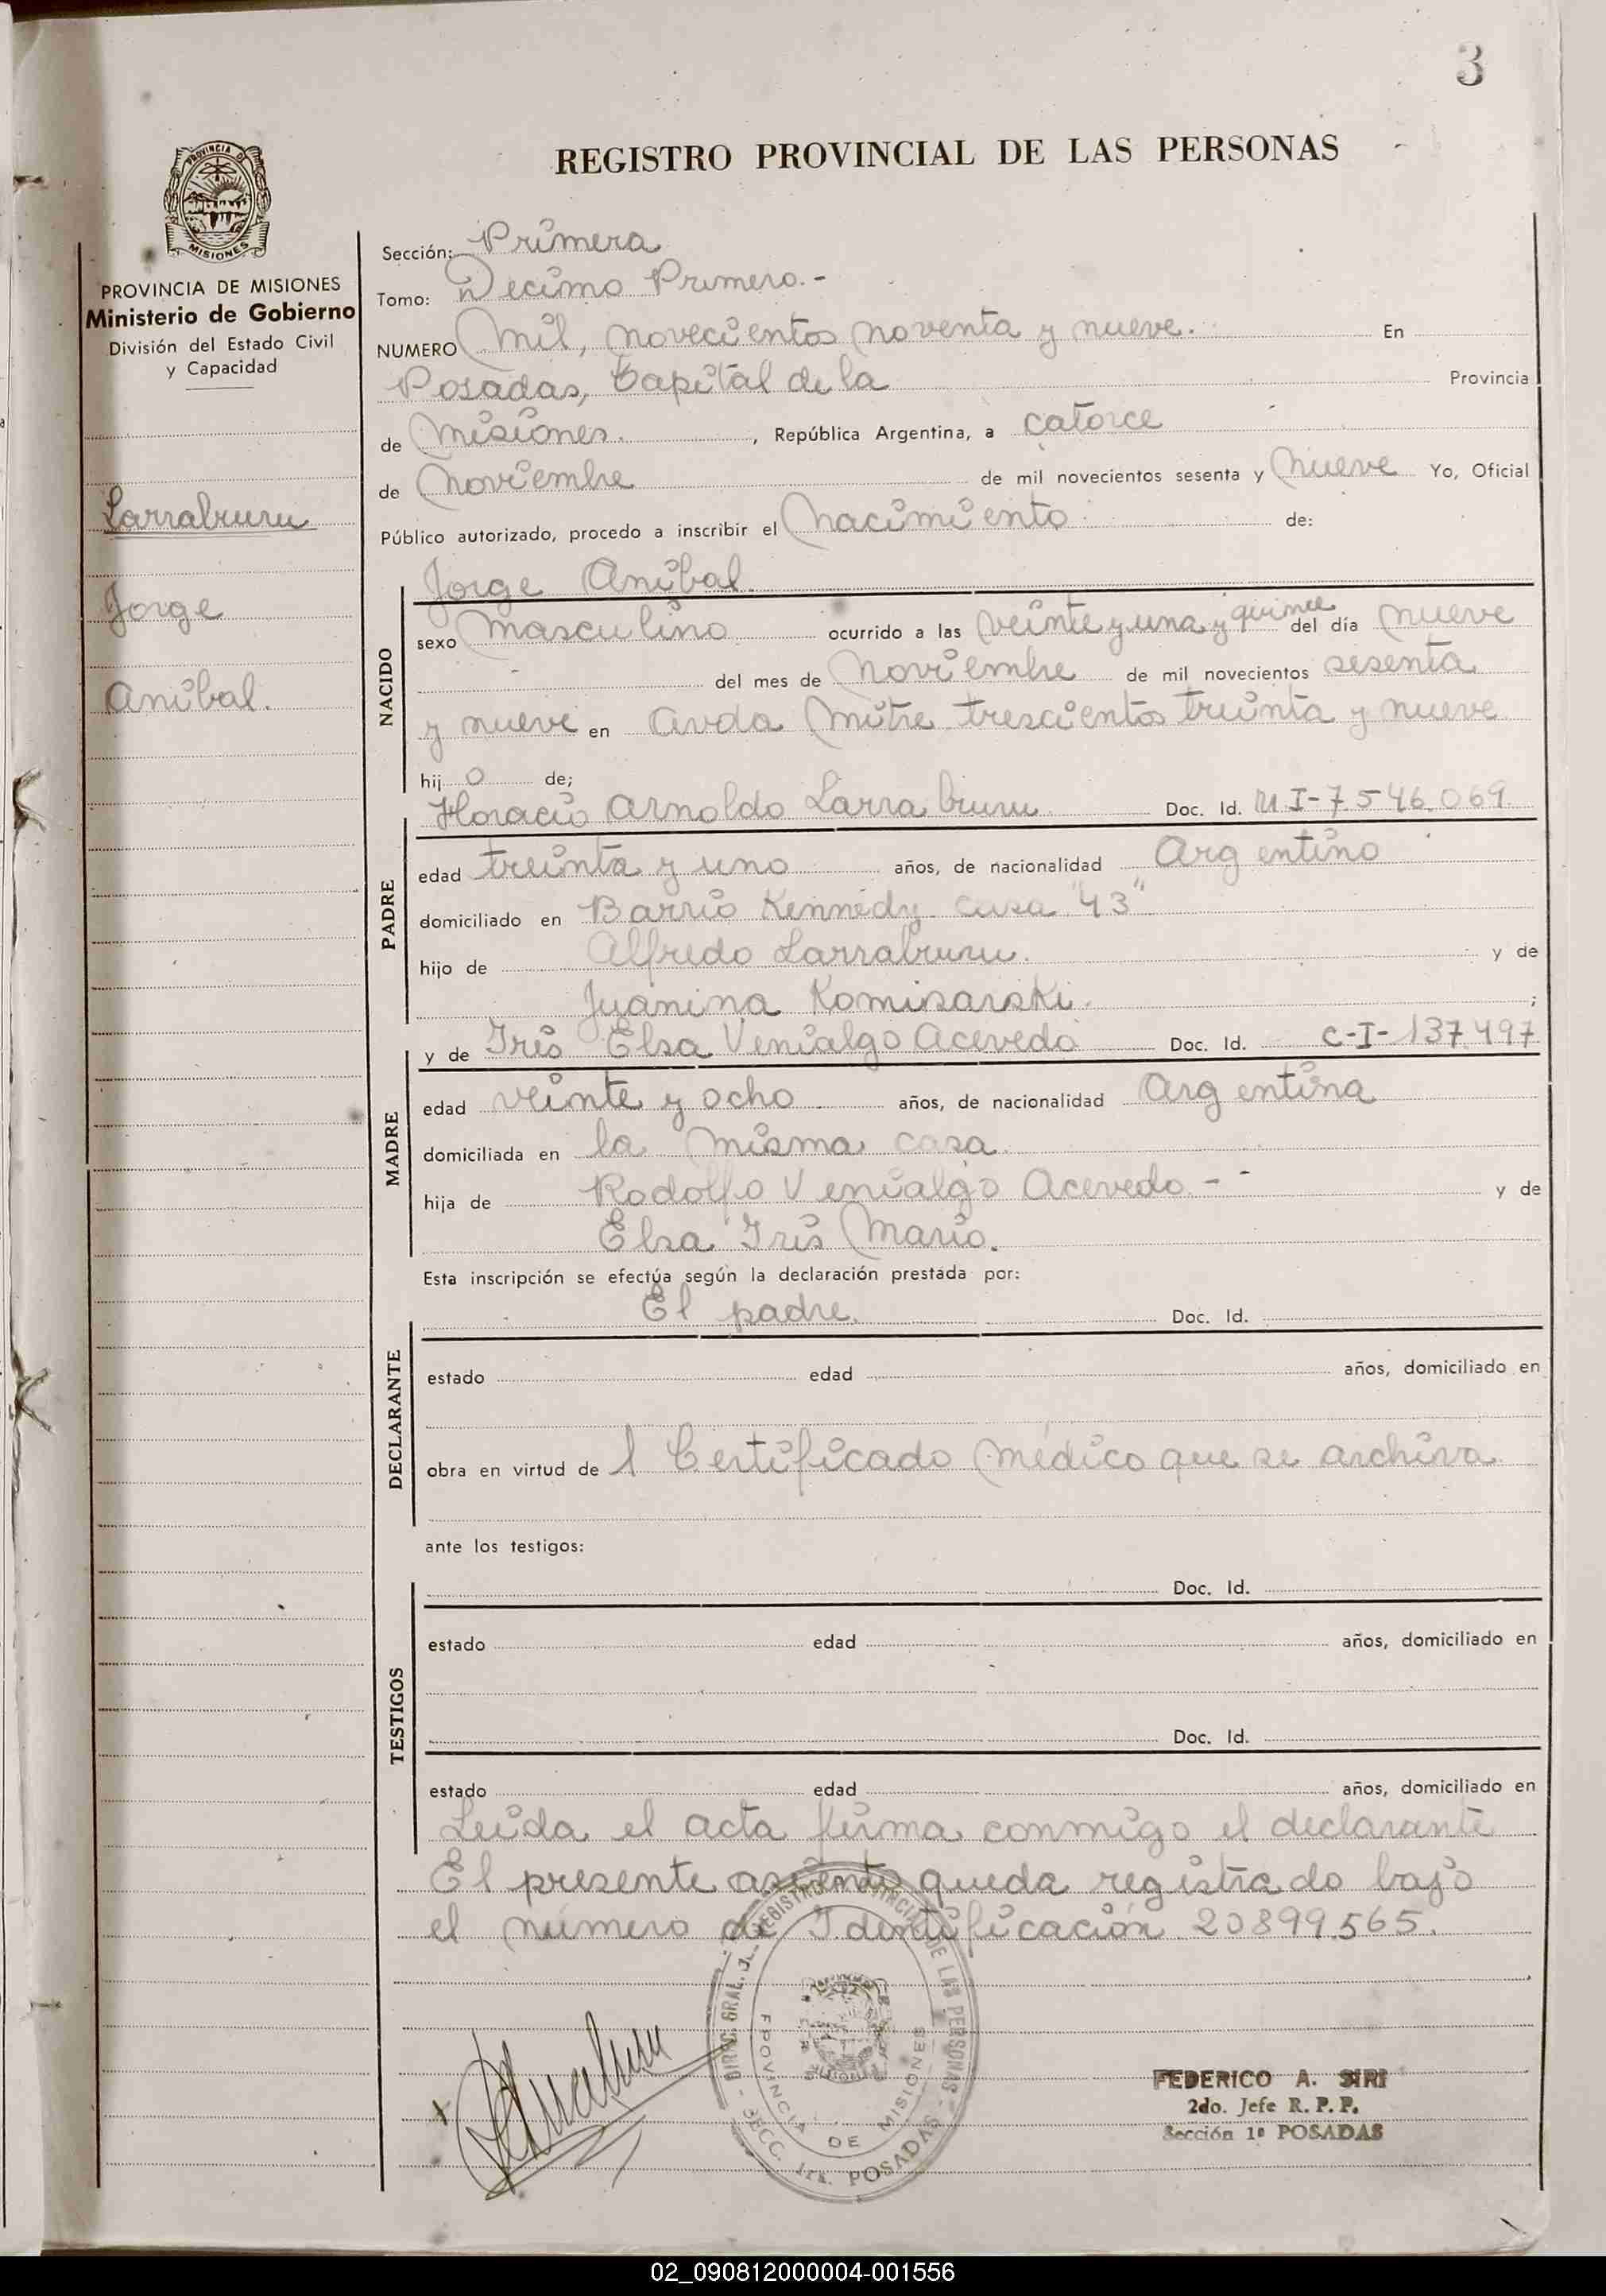 3
REGISTRO PROVINCIAL DE LAS PERSONAS
PROVINCIA DE
MISIONES
PROVINCIA DE MISIONES
Ministerio de Gobierno
División del Estado Civil
y Capacidad
Larraburu
Jorge
Anibal.
Sección: Primera
Tomo: Decimo Primero.-
NUMERO Mil, novecientos noventa y nueve. En
Posadas, Capital de la Provincia
de Misiones. , República Argentina, a catorce
de Noviembre de mil novecientos sesenta y Nueve Yo, Oficial
Público autorizado, procedo a inscribir el Nacimiento de:
Jorge Anibal
NACIDO
sexo Masculino ocurrido a las veinte y una y quince del día nueve
del mes de Noviembre de mil novecientos sesenta
y nueve en Avda Mitre trescientos treinta y nueve
hij o de;
Horacio Arnoldo Larraburu. Doc. Id. M I-7.546.069
PADRE
edad treinta y uno años, de nacionalidad Argentino
domiciliado en Barrio Kennedy casa "43"
hijo de Alfredo Larraburu. y de
Juanina Komisarski. ;
y de Iris Elsa Venialgo Acevedo Doc. Id. C-I-137.497
MADRE
edad veinte y ocho años, de nacionalidad Argentina
domiciliada en la misma casa
hija de Rodolfo Venialgo Acevedo.- - y de
Elsa Iris Mario.
Esta inscripción se efectúa según la declaración prestada por:
El padre. Doc. Id.
DECLARANTE
estado edad años, domiciliado en
obra en virtud de l Certificado Médico que se archiva
ante los testigos:
Doc. Id.
TESTIGOS
estado edad años, domiciliado en
Doc. Id.
estado edad años, domiciliado en
Leida el acta firma conmigo el declarante
El presente asiento queda registrado bajo
el numero de Identificación 20899.565.
DIREC. GRAL. REGISTRO PROVINCIAL DE LAS PERSONAS
PROVINCIA DE MISIONES
SECC. 1ra. POSADAS
FEDERICO A. SIRI
2do. Jefe R. P. P.
Sección 1ª POSADAS
02_090812000004-001556